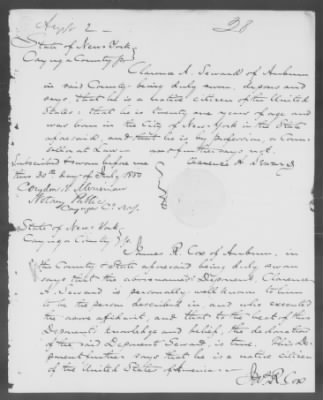 28
State of New York
Cayuga County ss
Clarence A. Seward of Auburn
in said County being duly sworn, deposes and
says that he is a native citizen of the United
States: that he is twenty one years of age and
was born in the City of New York in the State
aforesaid, and that he is by profession a Coun-
sellor at Law and further says not.
Clarence A Seward
Subscribed & sworn before me
this 30th day of July 1850
Notary Public
Cayuga Co. N.Y.
State of New York
Cayuga County ss
James R. Cox of Auburn, in
the County & State aforesaid being duly sworn
says that the above named Deponent, Clarence
A. Seward is personally well known to him
to be the person described in, and who executed
the above affidavit, and that to the best of this
Deponents knowledge and belief, the declaration
of the said Deponent Seward, is true. This De-
ponent further says that he is a native citizen
of the United States of America.
Jas. R. Cox